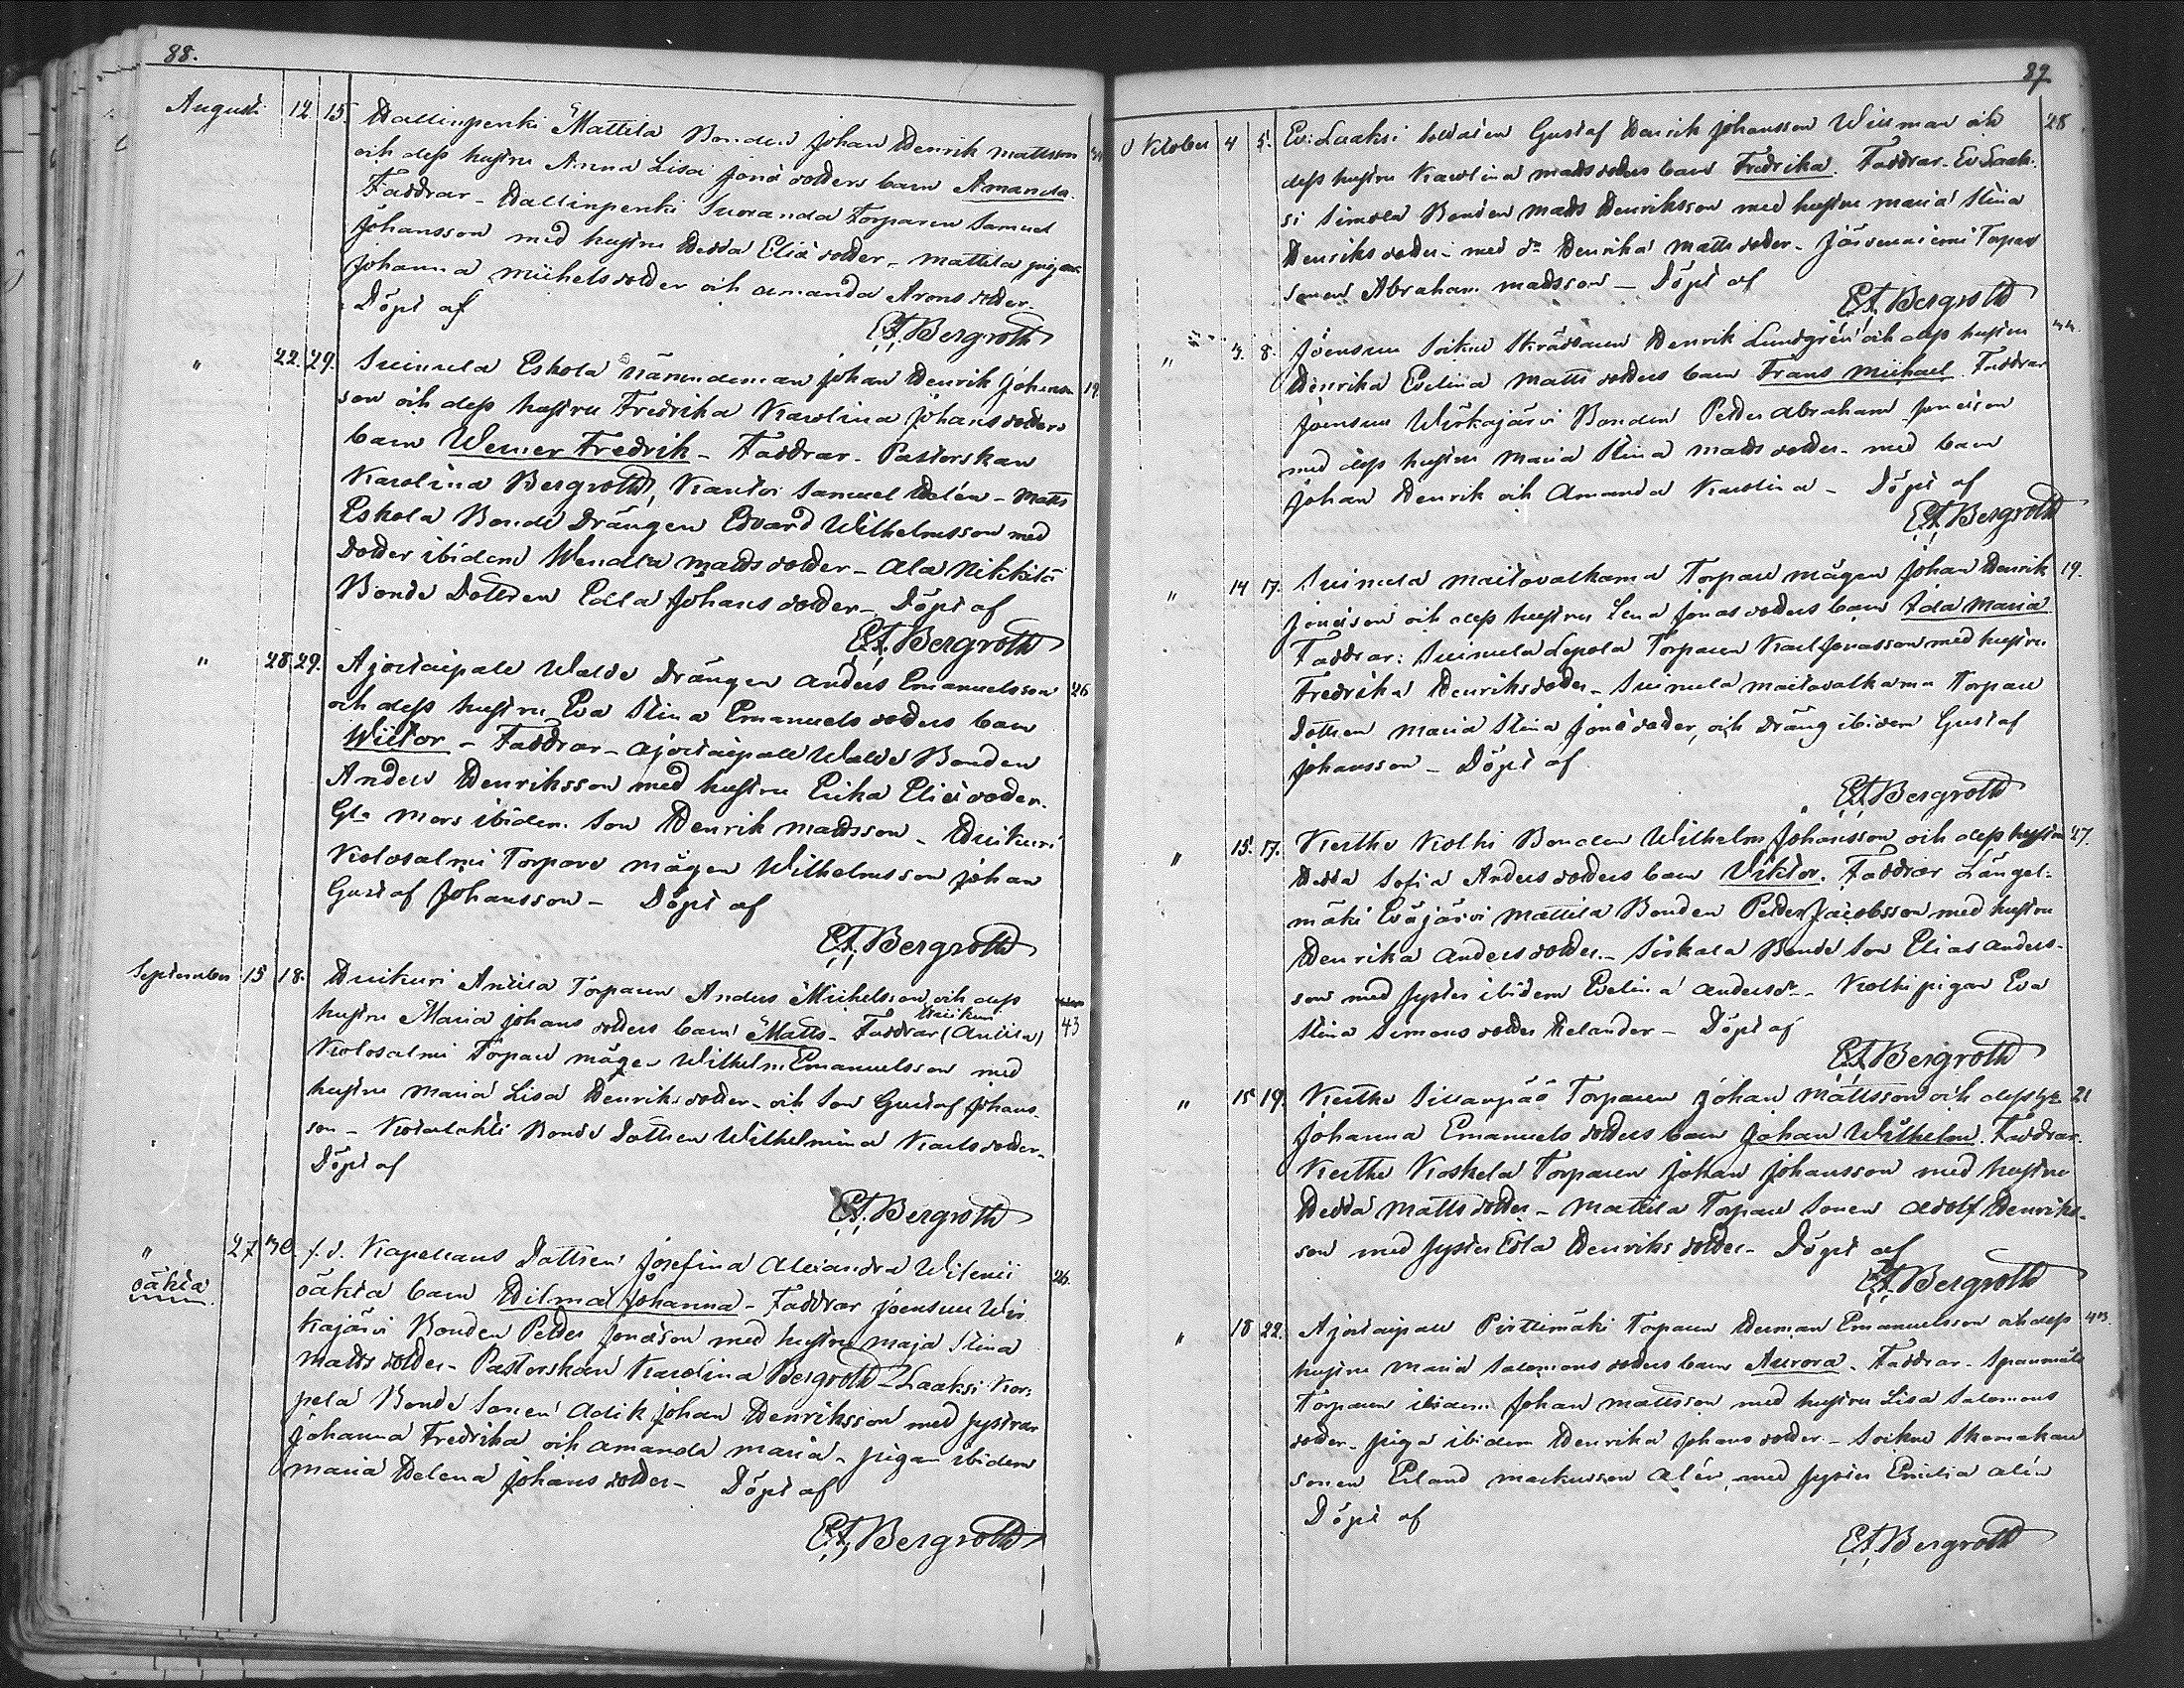 88.
Augusti 12. 15. Hallinpenki Mattila Bonden Johan Henrik Mattsson
och dess hustru Anna Lisa Jonä dotters barn Amanda.
Faddrar - Hallinpenki Suoranda Torparen Samuel
Johansson med hustru Hedda Eliä dotter - Mattila pigan
Johanna Michels dotter och Amanda Arons dotter.
Döpt af
E.F. Bergroth
" 22. 29. Suinula Eskola nämndeman Johan Henrik Johans 19
son och dess hustru Fredrika Karolina Johans dotters
barn Werner Fredrik - Faddrar - Pastorskan
Karolina Bergroth, Kantor Samuel Helén - Matts
Eskola Bonde Drängen Edvard Wilhelmsson med
dotter ibidem Wendla Matts dotter - Ala Nikkilä
Bonde Dottren Edla Johans dotter - Döpt af
E.F. Bergroth
" 28 29. Ajostaipale Walde Drängen Anders Emanuelsson 26
och dess hustru Eva Stina Emanuels dotters barn
Wictor - Faddrar - Ajostaipale Walde Bonden
Anders Henriksson med hustru Erika Eliä dotter.
Gla Mors ibidem Son Henrik Mattsson - Huikuri
Kolosalmi Torpare mågen Wilhelmsson Johan
Gustaf Johansson - Döpt af
E.F. Bergroth
September 15 18. Huikuri Anttila Torparen Anders Michelsson och dess
Huikuri
hustru Maria Johans dotters barn Matts - Faddrar (Anttila) 43
Kolosalmi Torpare mågen Wilhelm Emanuelsson med
hustru Maria Lisa Henriks dotter - och Son Gustaf Johans
son - Kotalahti Bonde Dottren Wilhelmina Karls dotter -
Döpt af
E.F. Bergroth
" 27 30. f.d. Kapellans Dottren Josefina Alexandra Wilenii 26.
oäkta
oäkta barn Hilma Johanna - Faddrar Joensuu Wir
kajärvi Bonden Petter Jonäson med hustru Maja Stina
Matts dotter - Pastorskan Karolina Bergroth - Laaksi Kor:
pela Bonde Sonen Adik Johan Henriksson med systrar
Johanna Fredrika och Amanda Maria - pigan ibidem
Maria Helena Johans dotter - Döpt af
E.F. Bergroth
89
October 4 5. Ev: Laaksi Soldaten Gustaf Henrik Johansson Willman och 28
dess hustru Karolina Matts dotters barn Fredrika. Faddrar - Ev Laak:
si Simola Bonden Matts Henriksson med hustru Maria Stina
Henriks dotter - med dr Henrika Matts dotter - Järvenniemi Torpare
sonen Abraham Mattsson - Döpt af
E.F. Bergroth
" 3. 8. Joensuu Soikne Skräddaren Henrik Lundgrén och dess hustru
Henrika Evelina Matts dotters barn Frans Michael. Faddrar
Joensuu Wirkajärvi Bonden Petter Abraham Jonäson
med dess hustru Maria Stina Matts dotter - med barn
Johan Henrik och Amanda Karolina - Döpt af
E.F. Bergroth
" 14 17. Suinula Maitovalkama Torpare mågen Johan Henrik 19.
Jonäson och dess hustru Lena Jonas dotters barn Ida Maria
Faddrar: Suinula Lepola Torparen Karl Jonasson med hustru
Fredrika Henriks dotter - Suinula Maitovalkama Torpare
Dottren Maria Stina Jonä dotter, och dräng ibidem Gustaf
Johansson - Döpt af
E.F. Bergroth
" 15. 17. Keitho Kolhi Bonden Wilhelm Johansson och dess hustru 27.
Hedda Sofia Anders dotters barn Viktor. Faddrar Längel:
mäki Eväjärvi Mattila Bonden Petter Jacobsson med hustru
Henrika Anders dotter - Siskala Bonde Son Elias Anders-
son med syster ibidem Evelina Andersdr - Kolhi pigan Eva
Stina Simons dotter Helander - Döpt af
E.F. Bergroth
" 15 19. Keitho Sillanpää Torparen Johan Mattsson och dess h: 21
Johanna Emanuels dotters barn Johan Wilhelm. Faddrar.
Keitho Koskela Torparen Johan Johansson med hustru
Hedda Matts dotter - Mattila Torpare Sonen Adolf Henriks-
son med syster Edla Henriks dotter - Döpt af
E.F. Bergroth
" 18 22. Ajostaipale Pirttimäki Torparen Herman Emanuelsson och dess 43.
hustru Maria Salomons dotters barn Aurora - Faddrar -
Torparen ibidem Johan Mattsson med hustru Lisa Salomons
dotter - piga ibidem Henrika Johans dotter - Soikne Skomakare
sonen Erland Markusson Alén, med syster Emilia Alén
Döpt af
E.F. Bergroth